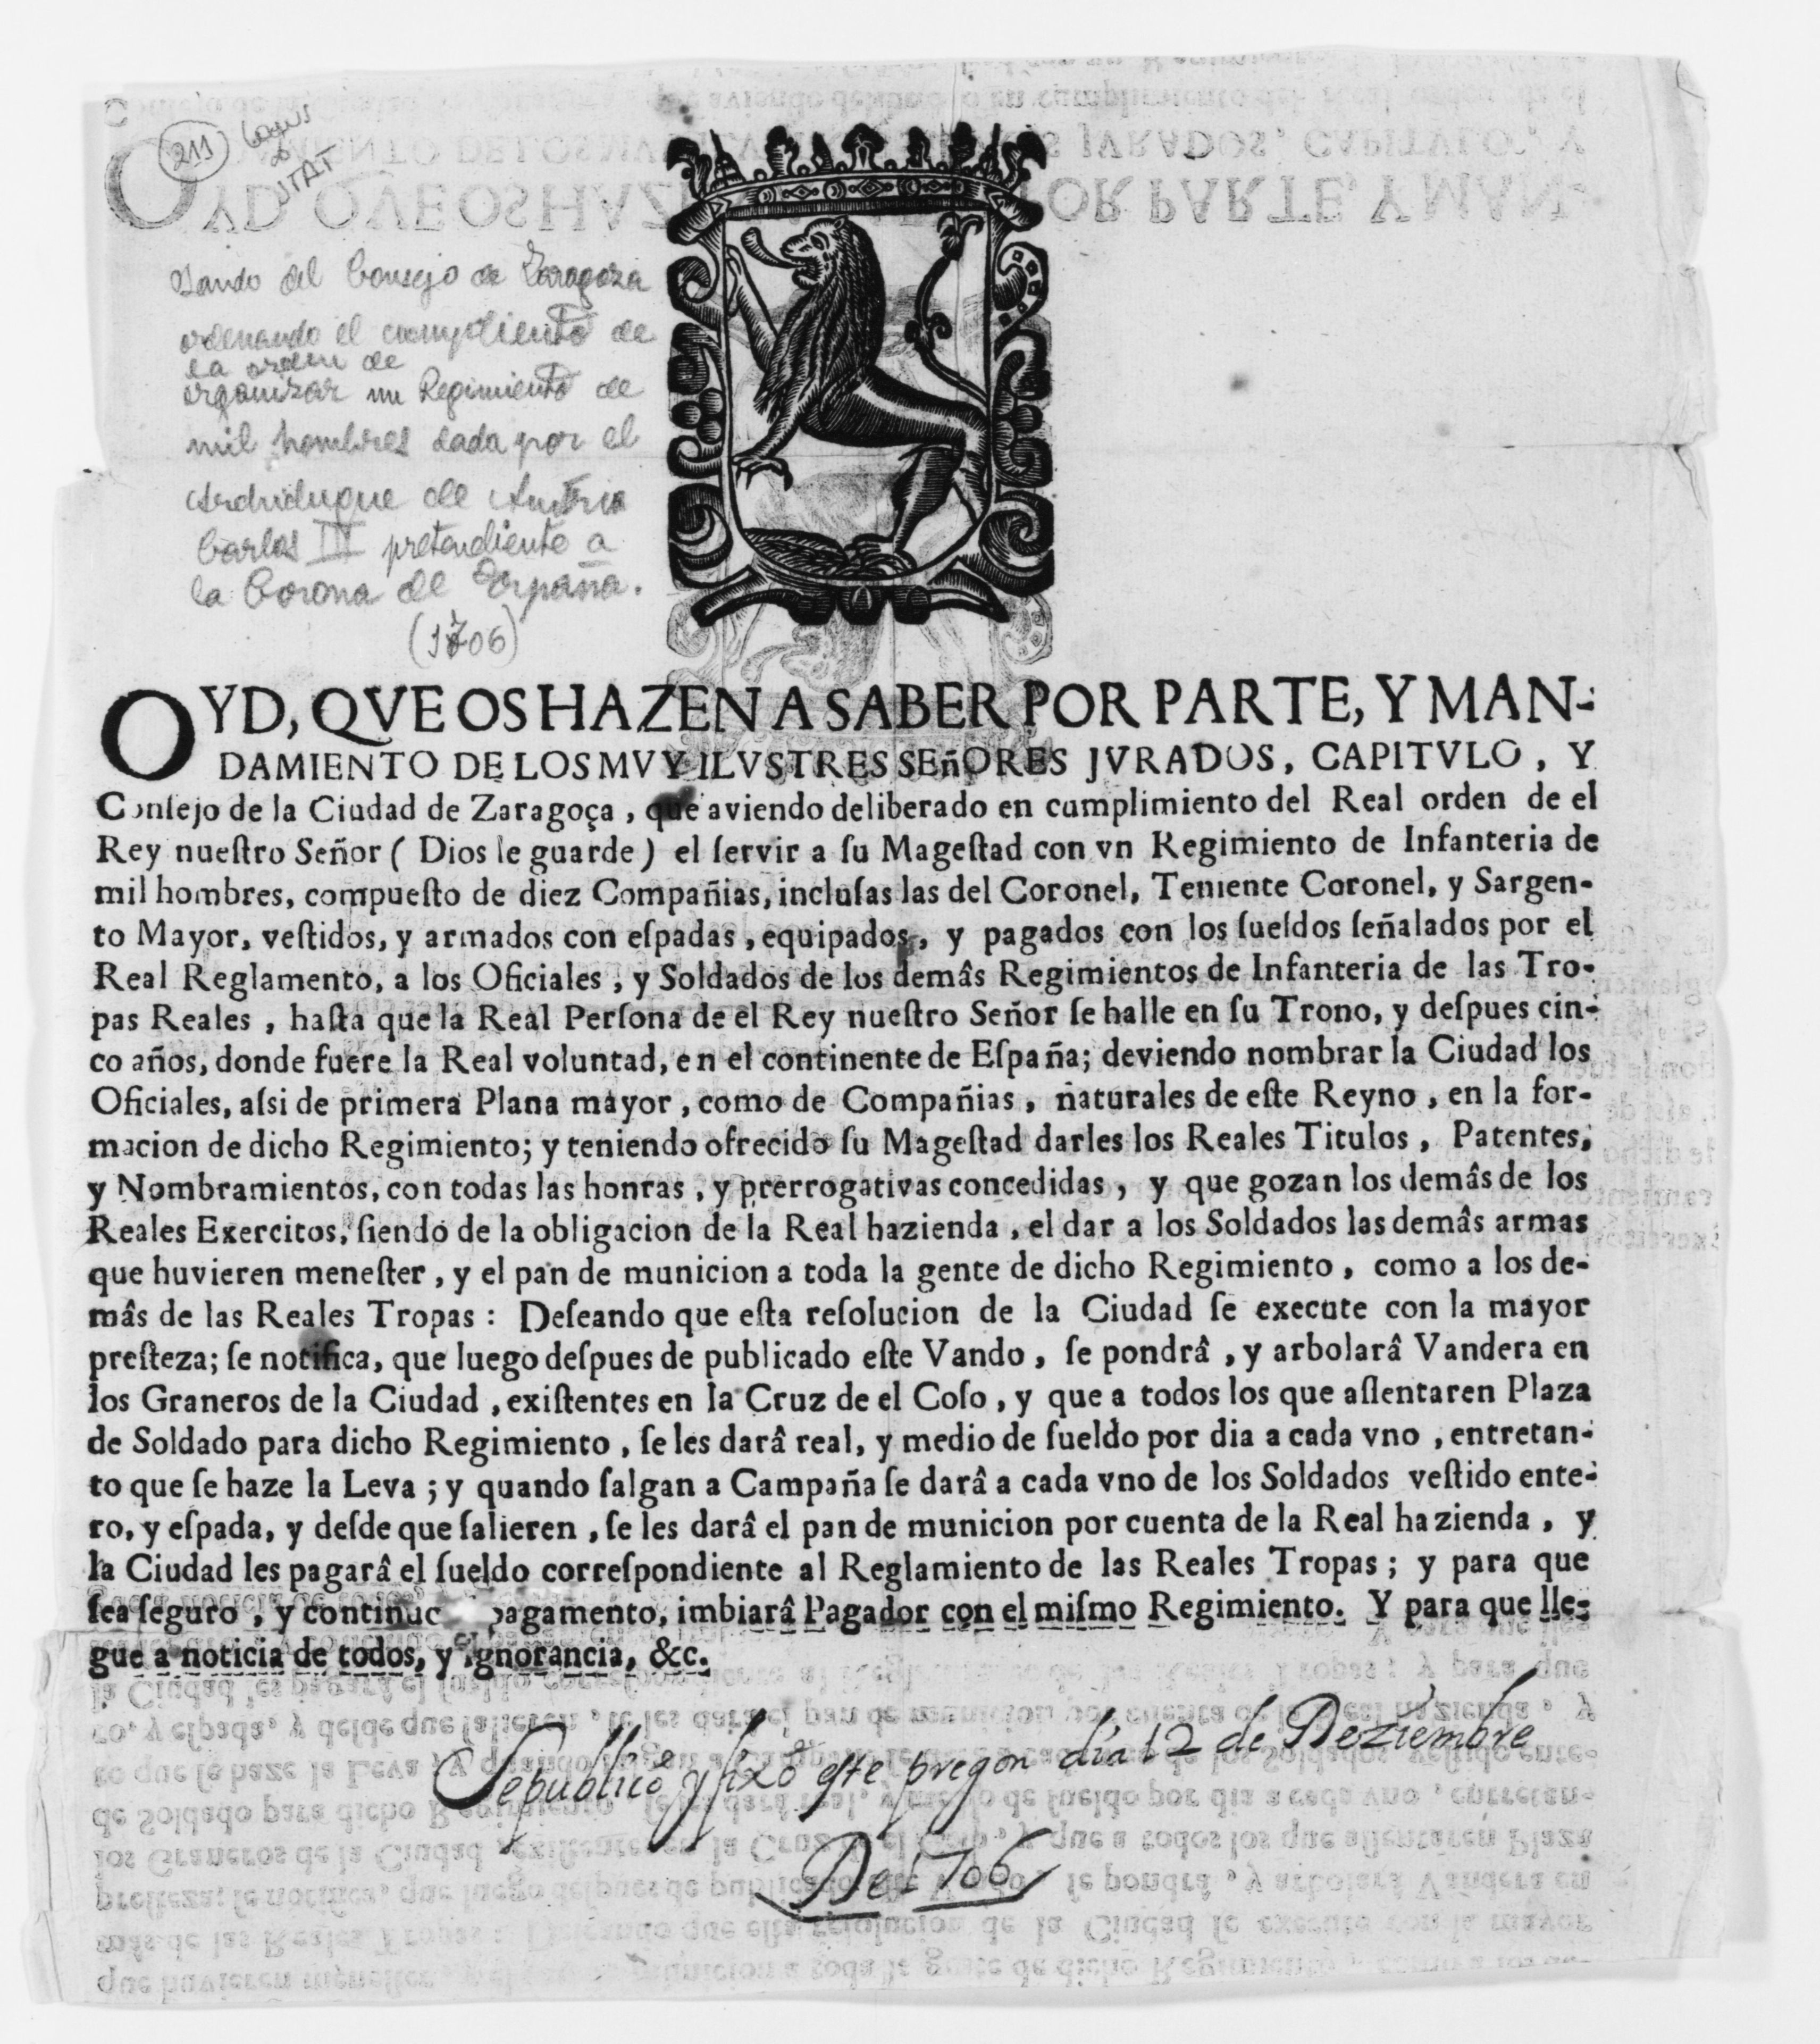 211
Bando del Consejo de Zaragoza
ordenando el cumpliento de
la orden de
organizar un Regimiento de
mil hombres dada por el
Archiduque de Austria
Carlos III pretendiente a
la Corona de España.
(1706)
OYD, QVE OS HAZEN A SABER POR PARTE, Y MAN-
DAMIENTO DE LOS MVY ILVSTRES SEñORES JVRADOS, CAPITVLO, Y
Conſejo de la Ciudad de Zaragoça, que aviendo deliberado en cumplimiento del Real orden de el
Rey nueſtro Señor ( Dios le guarde) el ſervir a ſu Mageſtad con vn Regimiento de Infanteria de
mil hombres, compueſto de diez Compañias, incluſas las del Coronel, Teniente Coronel, y Sargen-
to Mayor, veſtidos, y armados con eſpadas, equipados, y pagados con los ſueldos ſeñalados por el
Real Reglamento, a los Oficiales, y Soldados de los demâs Regimientos de Infanteria de las Tro-
pas Reales, haſta que la Real Perſona de el Rey nueſtro Señor ſe halle en ſu Trono, y deſpues cin-
co años, donde fuere la Real voluntad, en el continente de Eſpaña; deviendo nombrar la Ciudad los
Oficiales, aſsi de primera Plana mayor, como de Compañias, naturales de eſte Reyno, en la for-
macion de dicho Regimiento; y teniendo ofrecido ſu Mageſtad darles los Reales Titulos, Patentes,
y Nombramientos, con todas las honras, y prerrogativas concedidas, y que gozan los demâs de los
Reales Exercitos, ſiendo de la obligacion de la Real hazienda, el dar a los Soldados las demâs armas
que huvieren meneſter, y el pan de municion a toda la gente de dicho Regimiento, como a los de-
mâs de las Reales Tropas: Deſeando que eſta reſolucion de la Ciudad ſe execute con la mayor
preſteza; ſe notifica, que luego deſpues de publicado eſte Vando, ſe pondrâ, y arbolarâ Vandera en
los Graneros de la Ciudad, exiſtentes en la Cruz de el Coſo, y que a todos los que aſſentaren Plaza
de Soldado para dicho Regimiento, ſe les darâ real, y medio de ſueldo por dia a cada vno, entretan-
to que ſe haze la Leva; y quando ſalgan a Campaña ſe darâ a cada vno de los Soldados veſtido ente-
ro, y eſpada, y deſde que ſalieren, ſe les darâ el pan de municion por cuenta de la Real hazienda, y
la Ciudad les pagarâ el ſueldo correſpondiente al Reglamiento de las Reales Tropas; y para que
ſea ſeguro, y continuo pagamento, imbiarâ Pagador con el miſmo Regimiento. Y para que lle-
gue a noticia de todos, y ignorancia, &c.
Se publicò y fixò este pregon dia 12 de Deziembre
De 1706